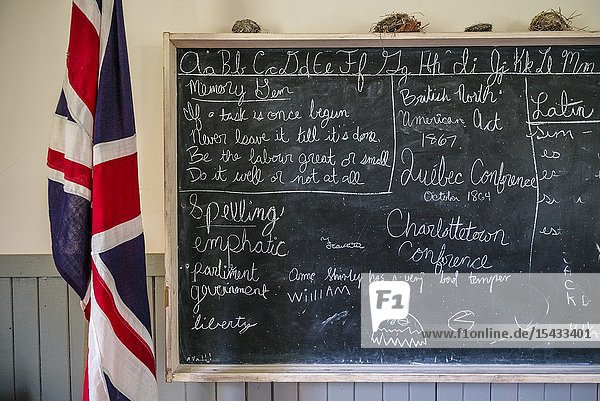 Aa Bb Cc Dd Ee Ff Gg Hh Ii Jj Kk Ll Mm
Memory Gem
If a task is once begun
Never leave it till it's done.
Be the labour great or small
Do it well or not at all
Spelling
emphatic
parliment
government
liberty
Anne Shirley has a very bad temper
WilliAM
British North
American Act
1867
Québec Conference
October 1864
Charlottetown
Conference
Latin
sum -
es
est
JACKD
F1
online
www.f1online.de
15433401